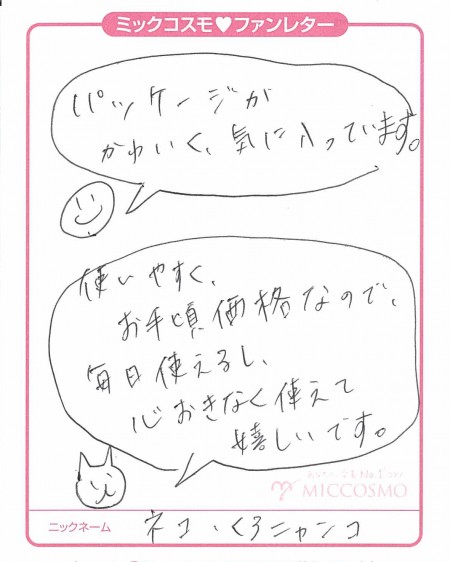 ミックコスモ♥ファンレター
パッケージが
かわいく、気に入っています。
使いやすく、
お手頃価格なので、
毎日使えるし、
心おきなく使えて
嬉しいです。
MICCOSMO
ニックネーム ネコ・くろニャンコ